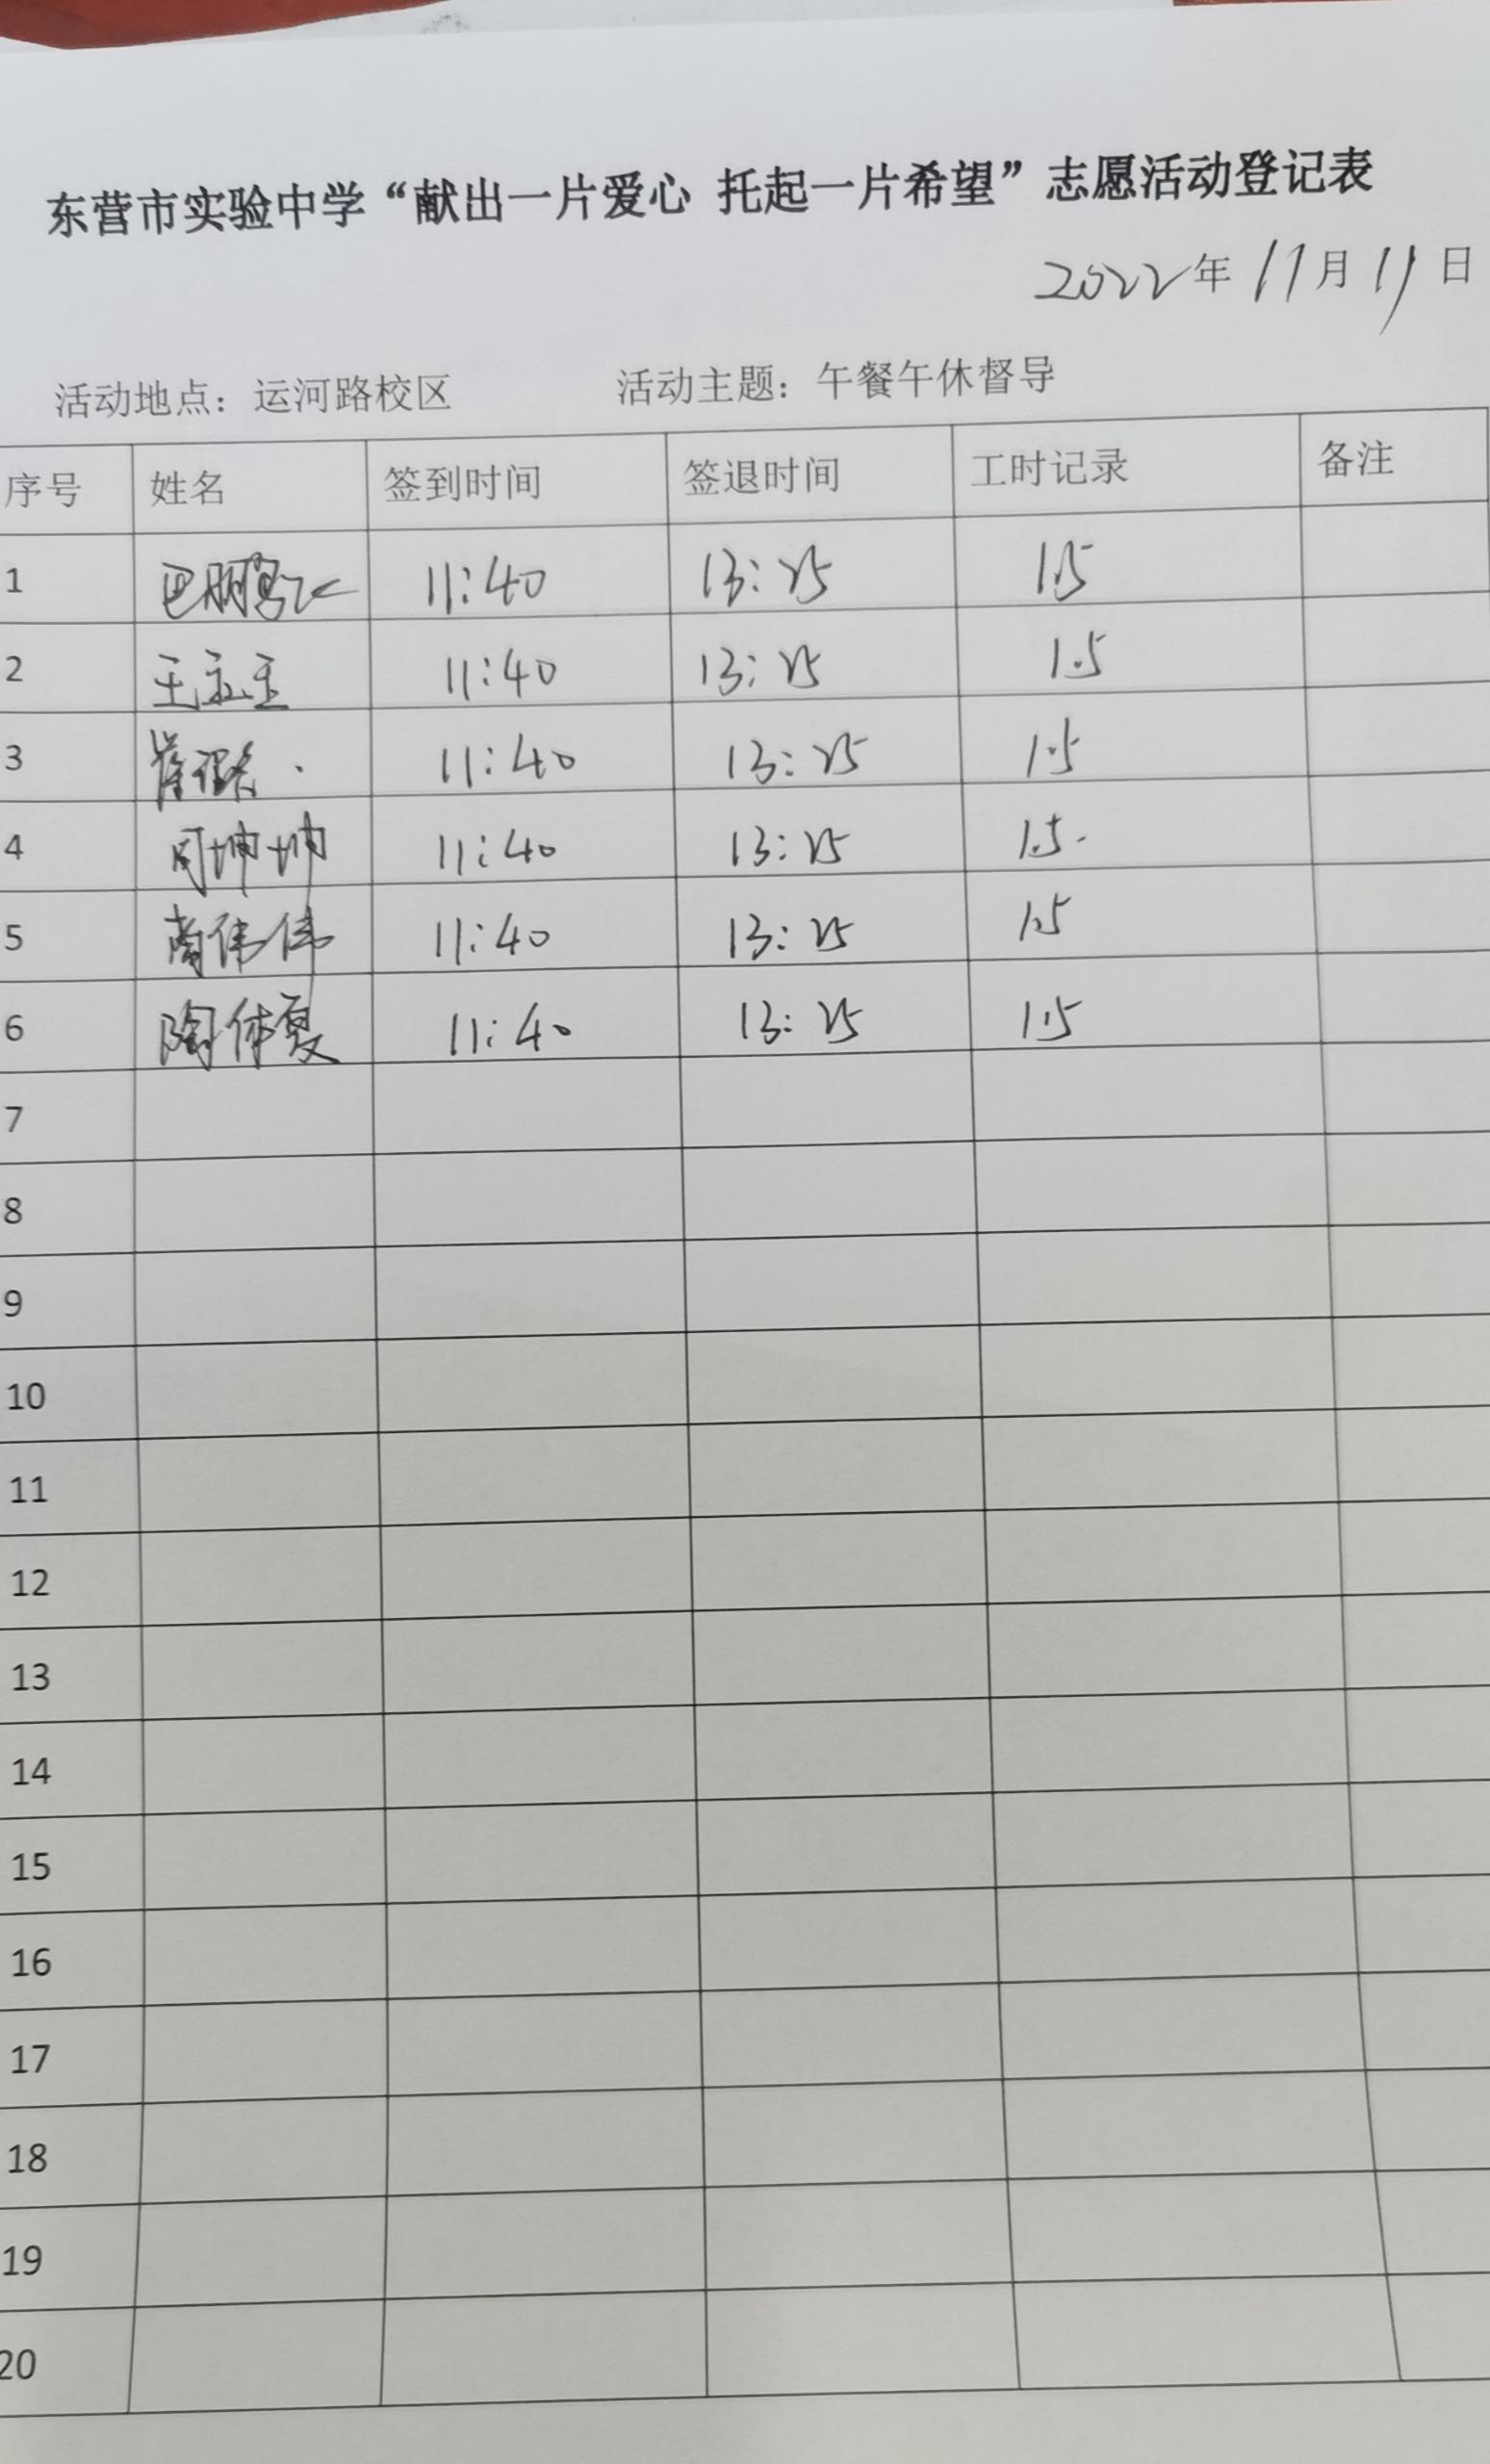 东营市实验中学“献出一片爱心 托起一片希望”志愿活动登记表
2022年11月11日
活动地点：运河路校区 活动主题：午餐午休督导
序号 姓名 签到时间 签退时间 工时记录 备注
1 巴鹏飞 11:40 13:25 1.5
2 王 11:40 13:25 1.5
3 崔 11:40 13:25 1.5
4 周坤坤 11:40 13:25 1.5
5 伟伟 11:40 13:25 1.5
6 陶休夏 11:40 13:25 1.5
7
8
9
10
11
12
13
14
15
16
17
18
19
20